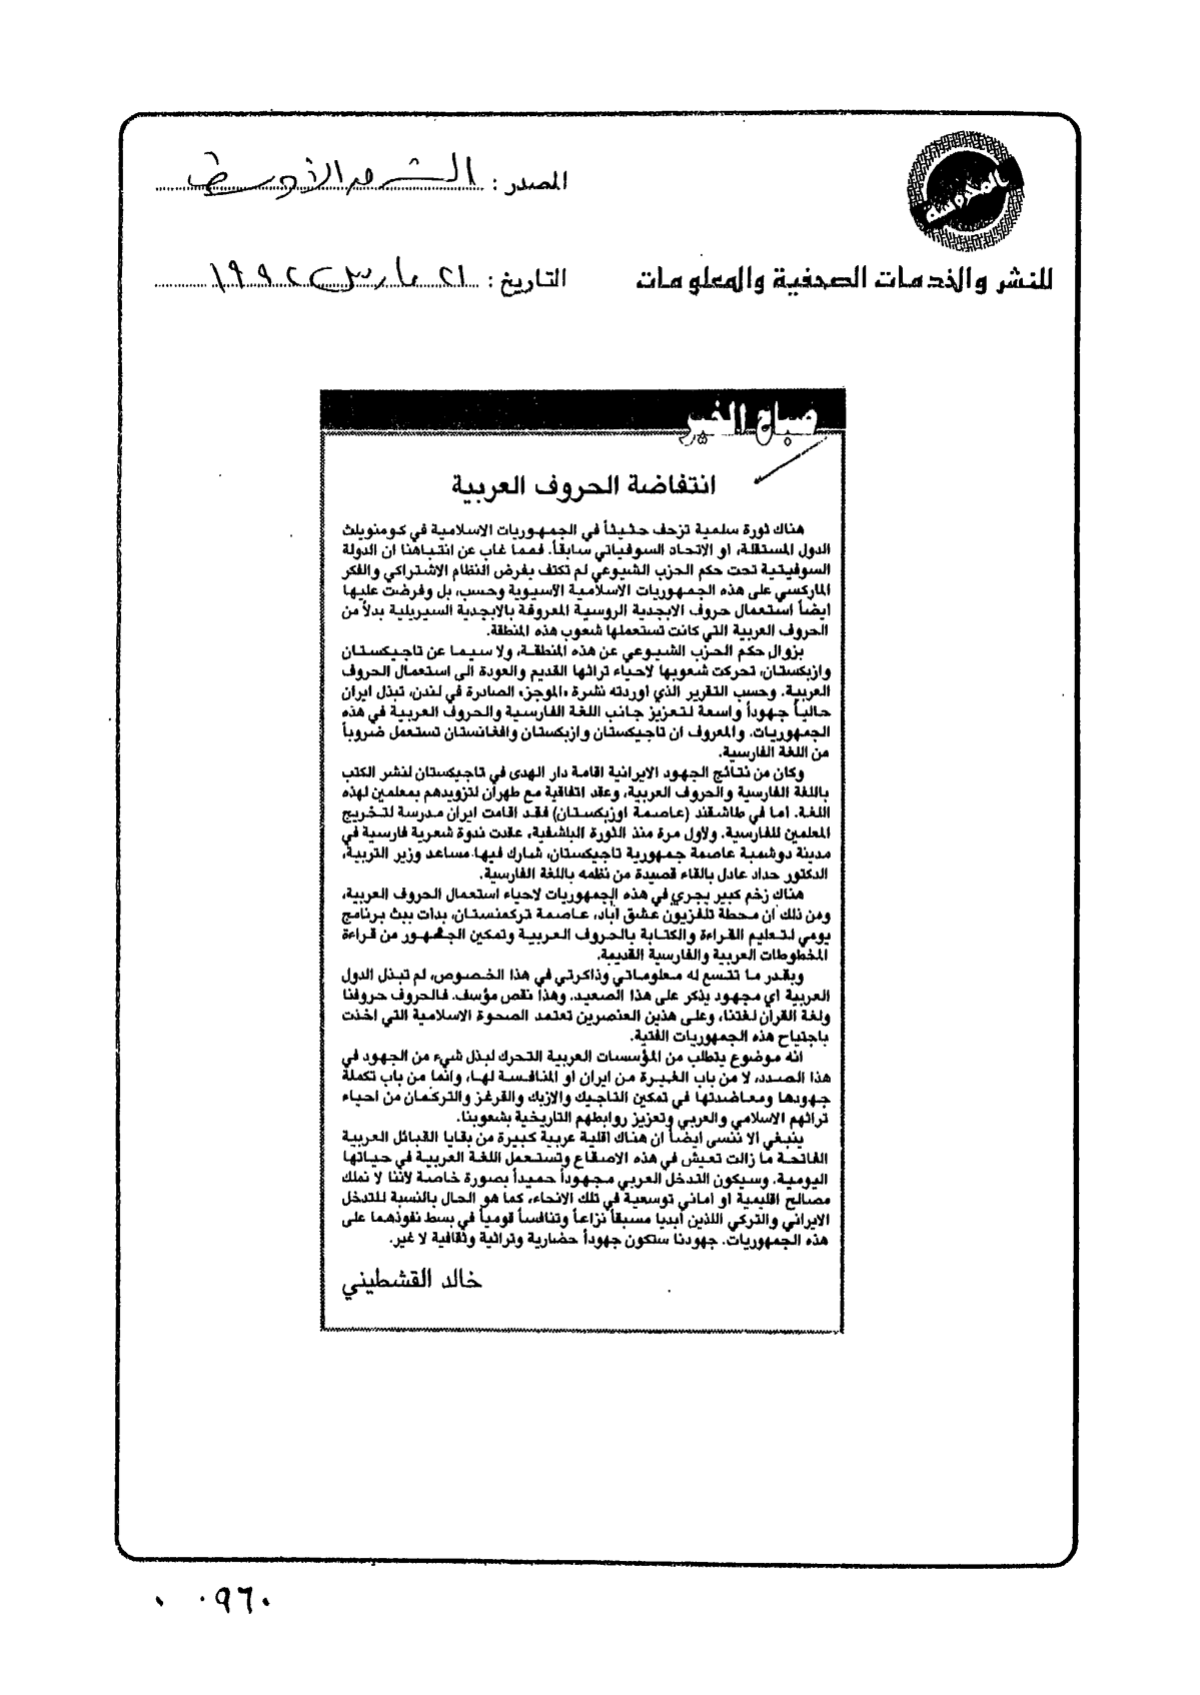 بالمحروسة
المصدر : الشرق الأوسط
للنشر والخدمات الصحفية والمعلومات
التاريخ : ٢١ مارس ١٩٩٢
صباح الخير
انتفاضة الحروف العربية
هناك ثورة سلمية تزحف حثيثاً في الجمهوريات الاسلامية في كومنويلث
الدول المستقلة، او الاتحاد السوفياتي سابقاً. فمما غاب عن انتباهنا ان الدولة
السوفيتية تحت حكم الحزب الشيوعي لم تكتف بفرض النظام الاشتراكي والفكر
الماركسي على هذه الجمهوريات الاسلامية الآسيوية وحسب، بل وفرضت عليها
ايضاً استعمال حروف الابجدية الروسية المعروفة بالابجدية السيريلية بدلاً من
الحروف العربية التي كانت تستعملها شعوب هذه المنطقة.
بزوال حكم الحزب الشيوعي عن هذه المنطقة، ولا سيما عن تاجيكستان
وازبكستان، تحركت شعوبها لاحياء تراثها القديم والعودة الى استعمال الحروف
العربية. وحسب التقرير الذي اوردته نشرة «الموجز» الصادرة في لندن، تبذل ايران
حالياً جهوداً واسعة لتعزيز جانب اللغة الفارسية والحروف العربية في هذه
الجمهوريات. والمعروف ان تاجيكستان وازبكستان وافغانستان تستعمل ضروباً
من اللغة الفارسية.
وكان من نتائج الجهود الايرانية اقامة دار الهدى في تاجيكستان لنشر الكتب
باللغة الفارسية والحروف العربية، وعقد اتفاقية مع طهران لتزويدهم بمعلمين لهذه
اللغة. اما في طاشقند (عاصمة اوزبكستان) فقد اقامت ايران مدرسة لتخريج
المعلمين للفارسية. ولاول مرة منذ الثورة البلشفية، عقدت ندوة شعرية فارسية في
مدينة دوشمبة عاصمة جمهورية تاجيكستان، شارك فيها مساعد وزير التربية،
الدكتور حداد عادل بالقاء قصيدة من نظمه باللغة الفارسية.
هناك زخم كبير يجري في هذه الجمهوريات لاحياء استعمال الحروف العربية،
ومن ذلك ان محطة تلفزيون عشق آباد، عاصمة تركمنستان، بدات ببث برنامج
يومي لتعليم القراءة والكتابة بالحروف العربية وتمكين الجمهور من قراءة
المخطوطات العربية والفارسية القديمة.
وبقدر ما تتسع له معلوماتي وذاكرتي في هذا الخصوص، لم تبذل الدول
العربية اي مجهود يذكر على هذا الصعيد. وهذا نقص مؤسف. فالحروف حروفنا
ولغة القرآن لغتنا، وعلى هذين العنصرين تعتمد الصحوة الاسلامية التي اخذت
باجتياح هذه الجمهوريات الفتية.
انه موضوع يتطلب من المؤسسات العربية التحرك لبذل شيء من الجهود في
هذا الصدد، لا من باب الغيرة من ايران او المنافسة لها، وانما من باب تكملة
جهودها ومعاضدتها في تمكين التاجيك والازبك والقرغز والتركمان من احياء
تراثهم الاسلامي والعربي وتعزيز روابطهم التاريخية بشعوبنا.
ينبغي الا ننسى ايضاً ان هناك اقلية عربية كبيرة من بقايا القبائل العربية
الفاتحة ما زالت تعيش في هذه الاصقاع وتستعمل اللغة العربية في حياتها
اليومية. وسيكون التدخل العربي مجهوداً حميداً بصورة خاصة لاننا لا نملك
مصالح اقليمية او اماني توسعية في تلك الانحاء، كما هو الحال بالنسبة للتدخل
الايراني والتركي اللذين ابديا مسبقاً نزاعاً وتنافساً قومياً في بسط نفوذهما على
هذه الجمهوريات. جهودنا ستكون جهوداً حضارية وتراثية وثقافية لا غير.
خالد القشطيني
٠ ٠٩٦٠